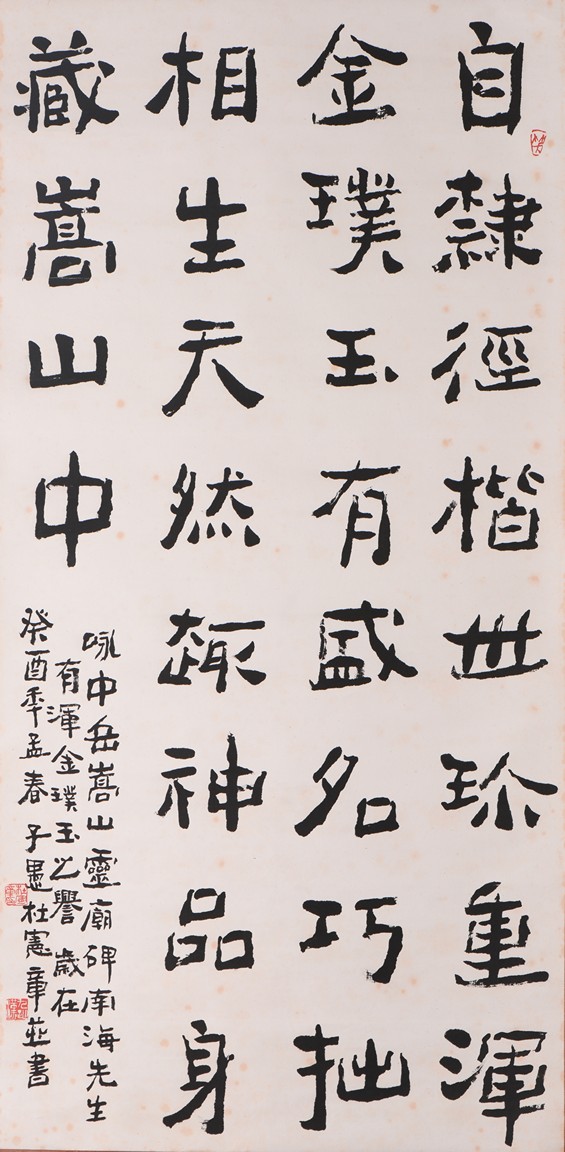 自隸徑楷世珎重渾
金璞玉有盛名巧拙
相生天然趣神品身
藏嵩山中
咏中岳嵩山靈廟碑南海先生
有渾金璞玉之譽歲在
癸酉季孟春子愚杜憲章並書